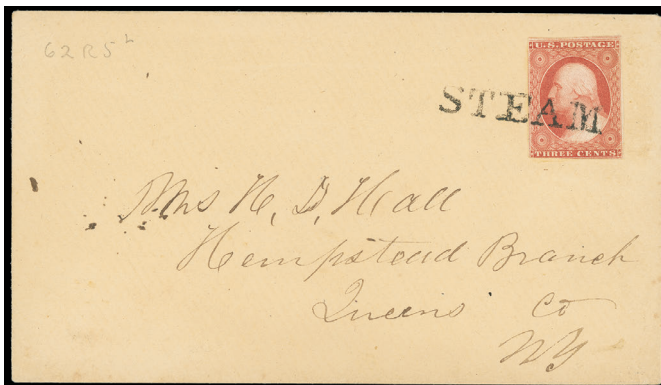 62R5L
U.S. POSTAGE
STEAM
THREE CENTS
Mrs N. D. Hall
Hempstead Branch
Queens Co
NY